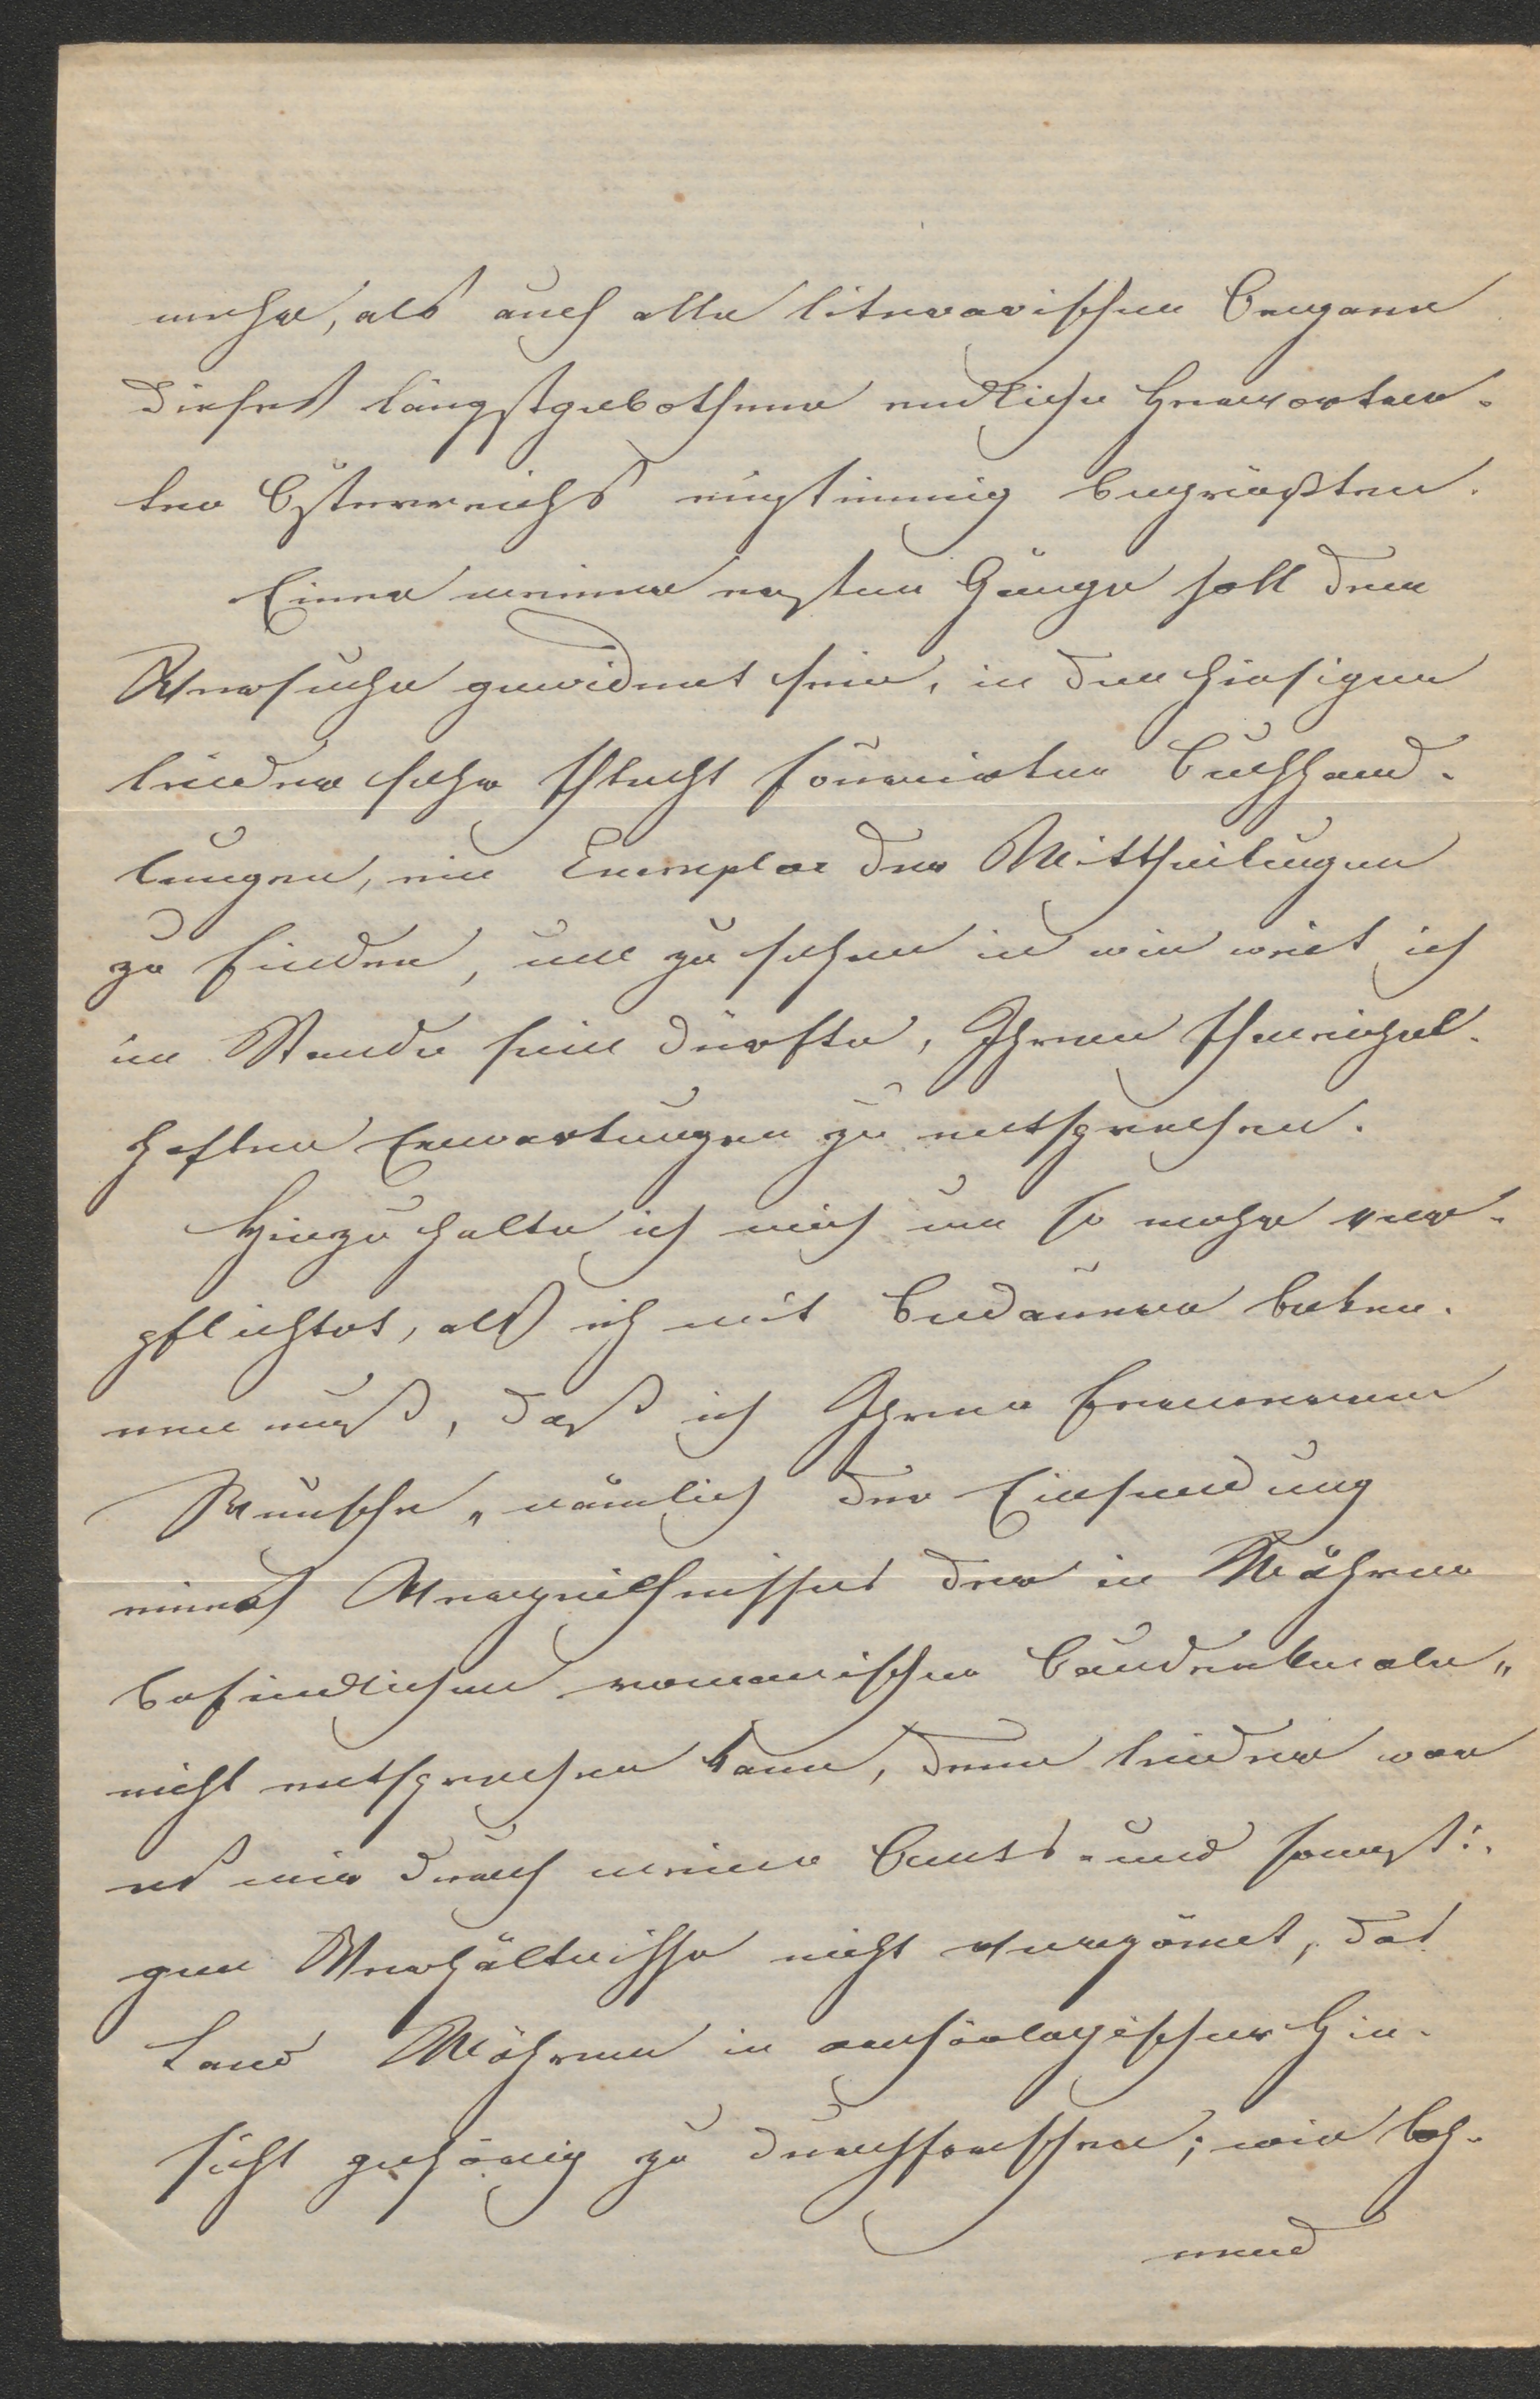 mehr, als auch alle literarischen Organe
dieses längstgebothene endliche Hervortre-
ten Österreichs einstimmig begrüßten.
Einer meiner ersten Gänge soll dem
Versuche gewidmet sein, in den hiesigen
leider sehr schlecht sourirten Buchhand-
lungen, ein Exemplar der Mittheilungen
zu finden, um zu sehen in wie weit ich
im Stande sein dürfte, Ihren schmeichel-
haften Erwartungen zu entsprechen.
Hiezu halte ich mich um so mehr ver-
pflichtet, als ich mit Bedauern beken-
nen muß, daß ich Ihrem ferneren
Wunsche „nämlich der Einsendung
eines Verzeichnisses der in Mähren
befindlichen romanischen Baudenkmale"
nicht entsprechen kann, denn leider war
es mir durch meine Amts- und sonsti-
gen Verhältnisse nicht vergönnt, das
Land Mähren in archäologischer Hin-
sicht gehörig zu durchforschen; wie loh-
nend